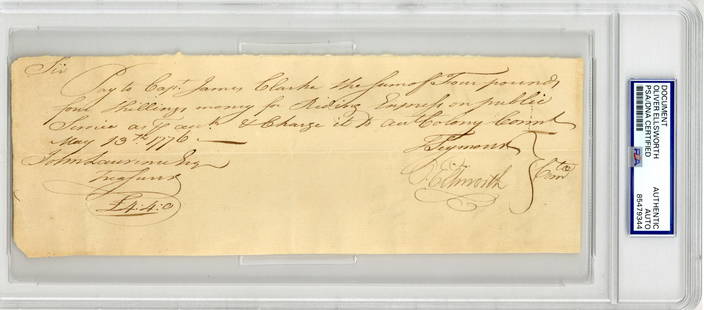 Sir
Pay to Capt. James Clarke the sum of Four pounds
four Shillings money for Riding Express on public
Service as pr. acct. & Charge it to acct. Colony Connt
May 13th 1776
John Lawrence Esq
Treasurer
£4:4:0
T Seymour
O Ellsworth
Comtee
DOCUMENT
OLIVER ELLSWORTH
PSA/DNA CERTIFIED
PSA
AUTHENTIC
AUTO
85479344